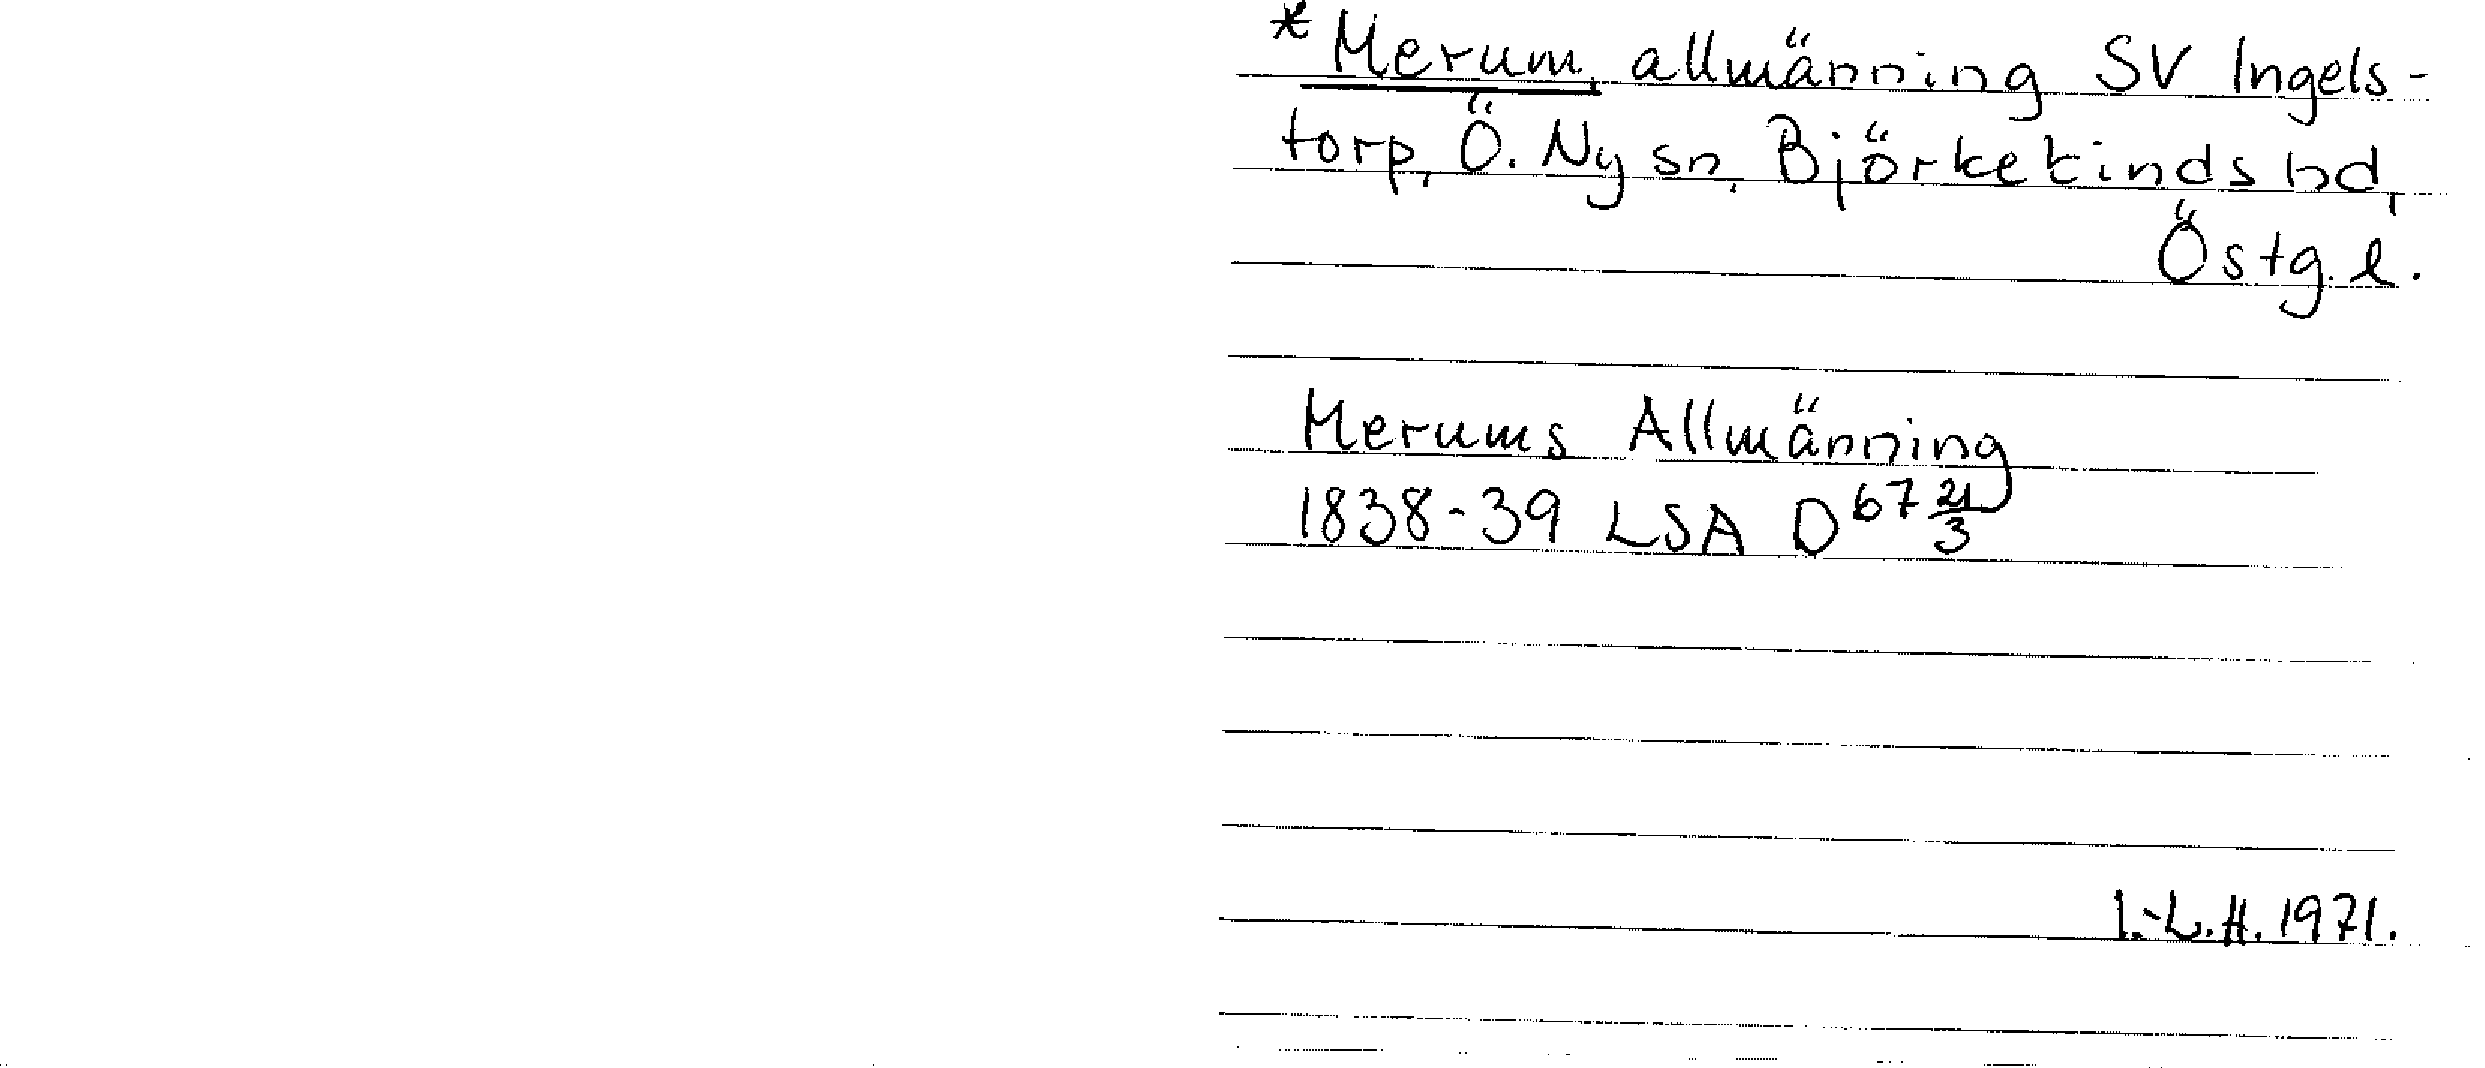 *Merum, allmänning SV Ingels-
torp, Ö. Ny sn, Björkekinds hd,
Östg. l.
Merums Allmänning
1838-39 LSA D 67 21/3
I.-L.H. 1971.